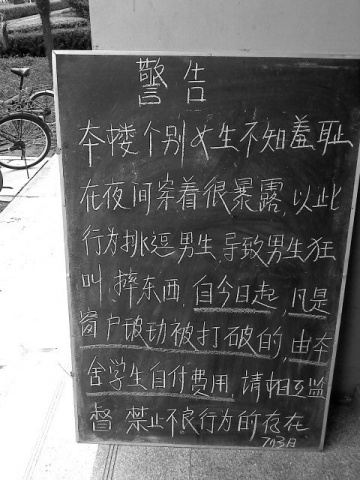 警告
本楼个别女生不知羞耻
在夜间穿着很暴露,以此
行为挑逗男生,导致男生狂
叫,摔东西,自今日起,凡是
窗户玻功被打破的,由本
舍学生自付费用,请相互监
督 禁止不良行为的存在
7月3日